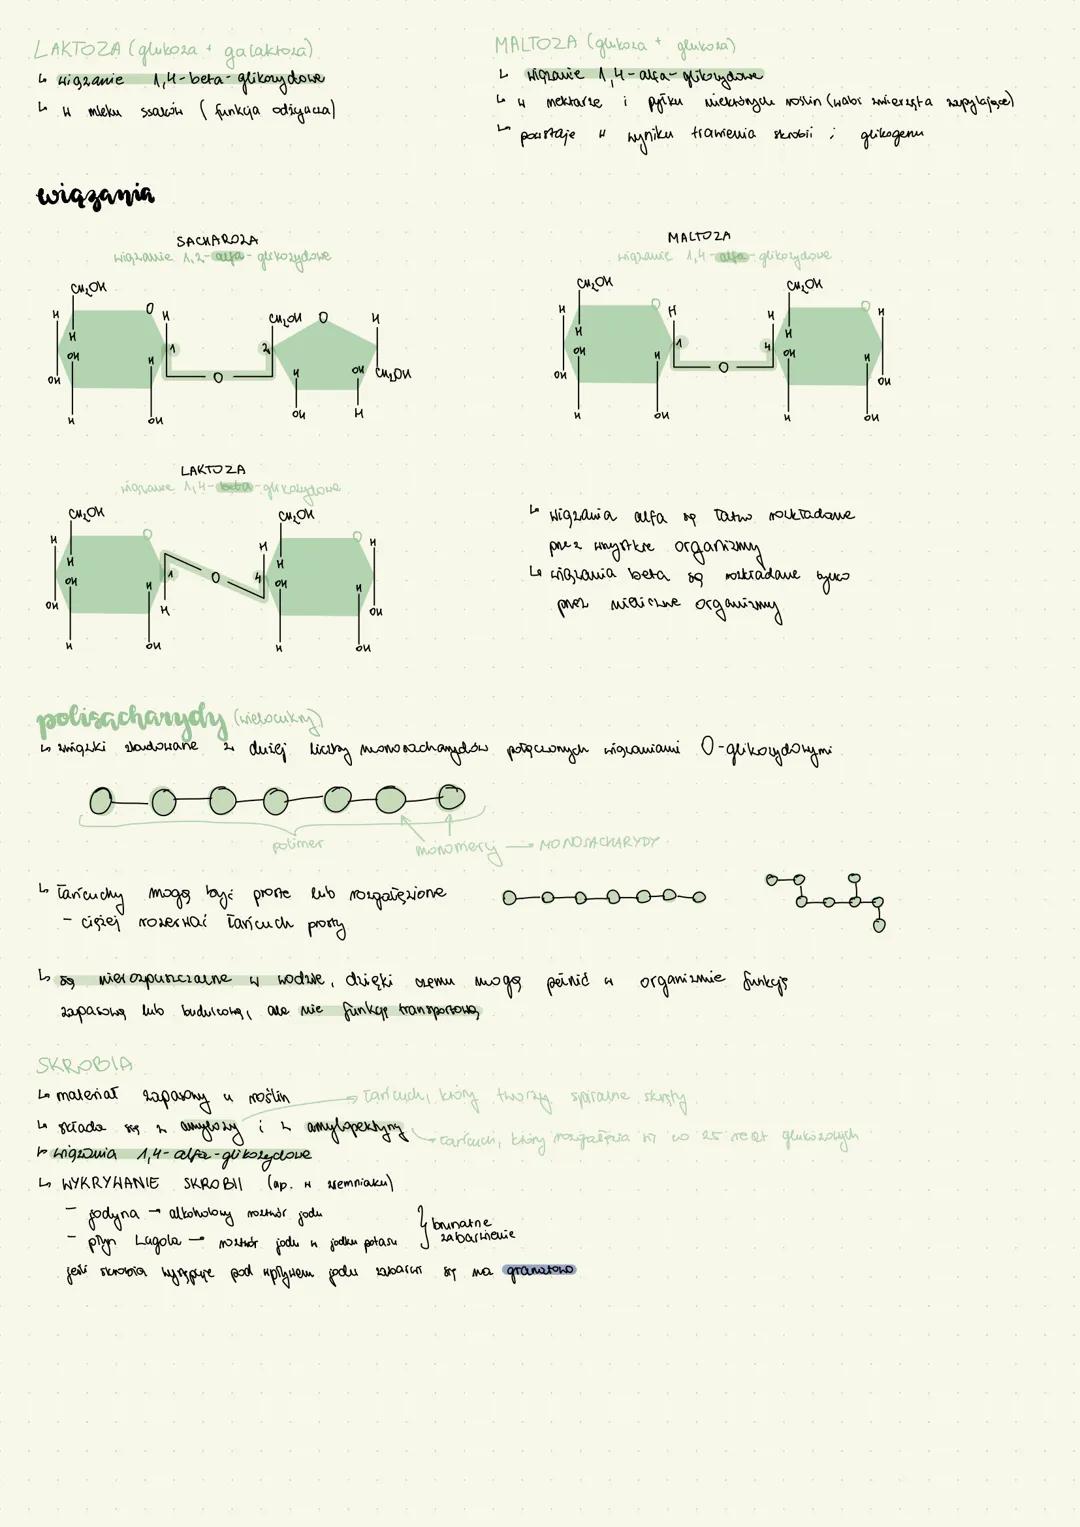 LAKTOZA (glukoza + galaktoza)
↳ wiązanie 1,4-beta-glikozydowe
↳ w mleku ssaków (funkcja odżywcza)
MALTOZA (glukoza + glukoza)
↳ wiązanie 1,4-alfa-glikozydowe
↳ w nektarze i pyłku niektórych roślin (wabi zwierzęta zapylające)
↳ powstaje w wyniku trawienia skrobii i glikogenu
wiązania
SACHAROZA
wiązanie 1,2-alfa-glikozydowe
CH₂OH
H O H CH₂OH O H
H 1 2
OH H H OH CH₂OH
OH O
H OH OH H
MALTOZA
wiązanie 1,4-alfa-glikozydowe
CH₂OH CH₂OH
H O H H O H
H 1 4 H
OH H OH H
OH O OH
H OH H OH
LAKTOZA
wiązanie 1,4-beta-glikozydowe
CH₂OH CH₂OH
H O H O H
H 1 O 4 H
OH H OH H
OH H OH
H OH H OH
↳ wiązania alfa są łatwo rozkładane
przez wszystkie organizmy
↳ wiązania beta są rozkładane tylko
przez nieliczne organizmy
polisacharydy (wielocukry)
↳ związki zbudowane z dużej liczby monosacharydów połączonych wiązaniami O-glikozydowymi
polimer
monomery → MONOSACHARYDY
↳ łańcuchy mogą być proste lub rozgałęzione
- ciężej rozerwać łańcuch prosty
↳ są nierozpuszczalne w wodzie, dzięki czemu mogą pełnić w organizmie funkcję
zapasową lub budulcową, ale nie funkcję transportową
SKROBIA
↳ materiał zapasowy u roślin
→ łańcuch, który tworzy spiralne skręty
↳ składa się z amylozy i z amylopektyny
→ łańcuch, który rozgałęzia się co 25 reszt glukozowych
↳ wiązania 1,4-alfa-glikozydowe
↳ WYKRYWANIE SKROBII (np. w ziemniaku)
- jodyna → alkoholowy roztwór jodu
- płyn Lugola → roztwór jodu w jodku potasu
} brunatne
zabarwienie
jeśli skrobia występuje pod wpływem jodu zabarwi się na granatowo